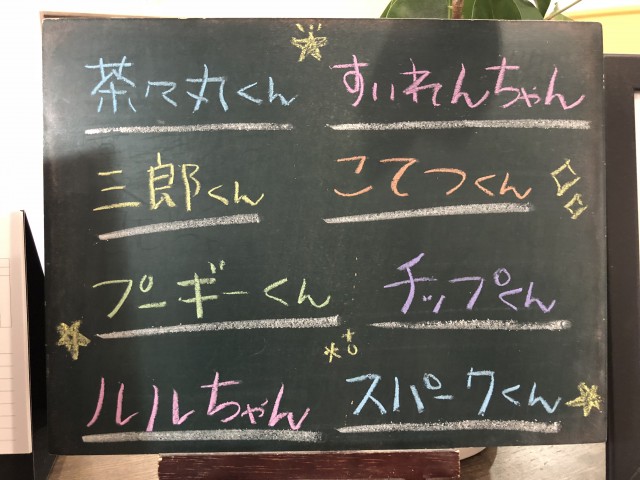 茶々丸くん すいれんちゃん
三郎くん こてつくん
プーギーくん チップくん
ルルちゃん スパークくん